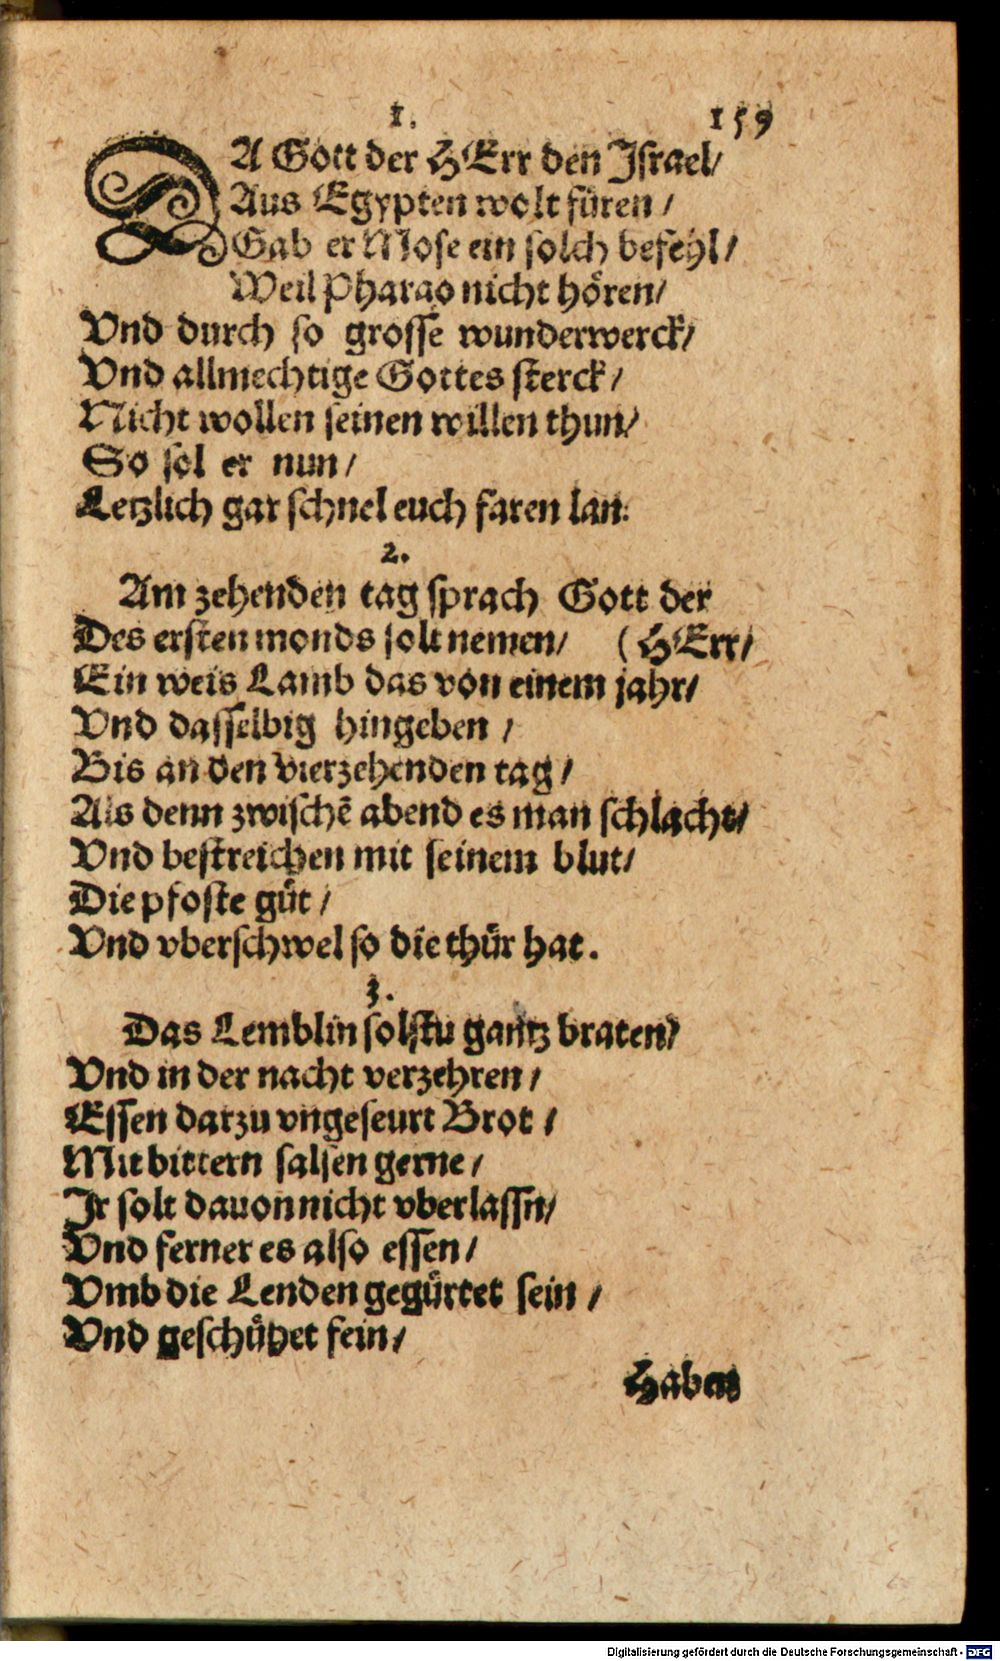 1. 159
DA Gott der HErr den Israel/
Aus Egypten wolt füren /
Gab er Mose ein solch befehl/
Weil Pharao nicht hören/
Vnd durch so grosse wunderwerck/
Vnd allmechtige Gottes sterck /
Nicht wollen seinen willen thun/
So sol er nun /
Letzlich gar schnel euch faren lan.
2.
Am zehenden tag sprach Gott der
Des ersten monds solt nemen/ (HErr/
Ein weis Lamb das von einem jahr/
Vnd dasselbig hingeben /
Bis an den vierzehenden tag /
Als denn zwischē abend es man schlacht/
Vnd bestreichen mit seinem blut/
Die pfoste gůt /
Vnd vberschwel so die thür hat.
3.
Das Lemblin solstu gantz braten/
Vnd in der nacht verzehren /
Essen darzu vngeseurt Brot /
Mit bittern salsen gerne /
Jr solt dauon nicht vberlassn/
Vnd ferner es also essen /
Vmb die Lenden gegürtet sein /
Vnd geschützet fein /
Habens
Digitalisierung gefördert durch die Deutsche Forschungsgemeinschaft - DFG